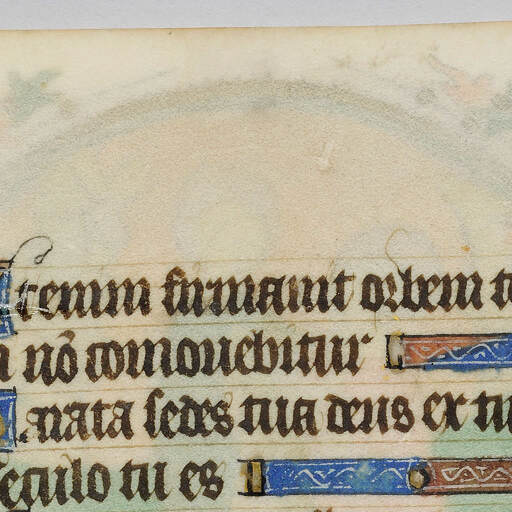 tenim firmauit orbem t
nō comouebitur
arata sedes tua deus ex tu
seculo tu es